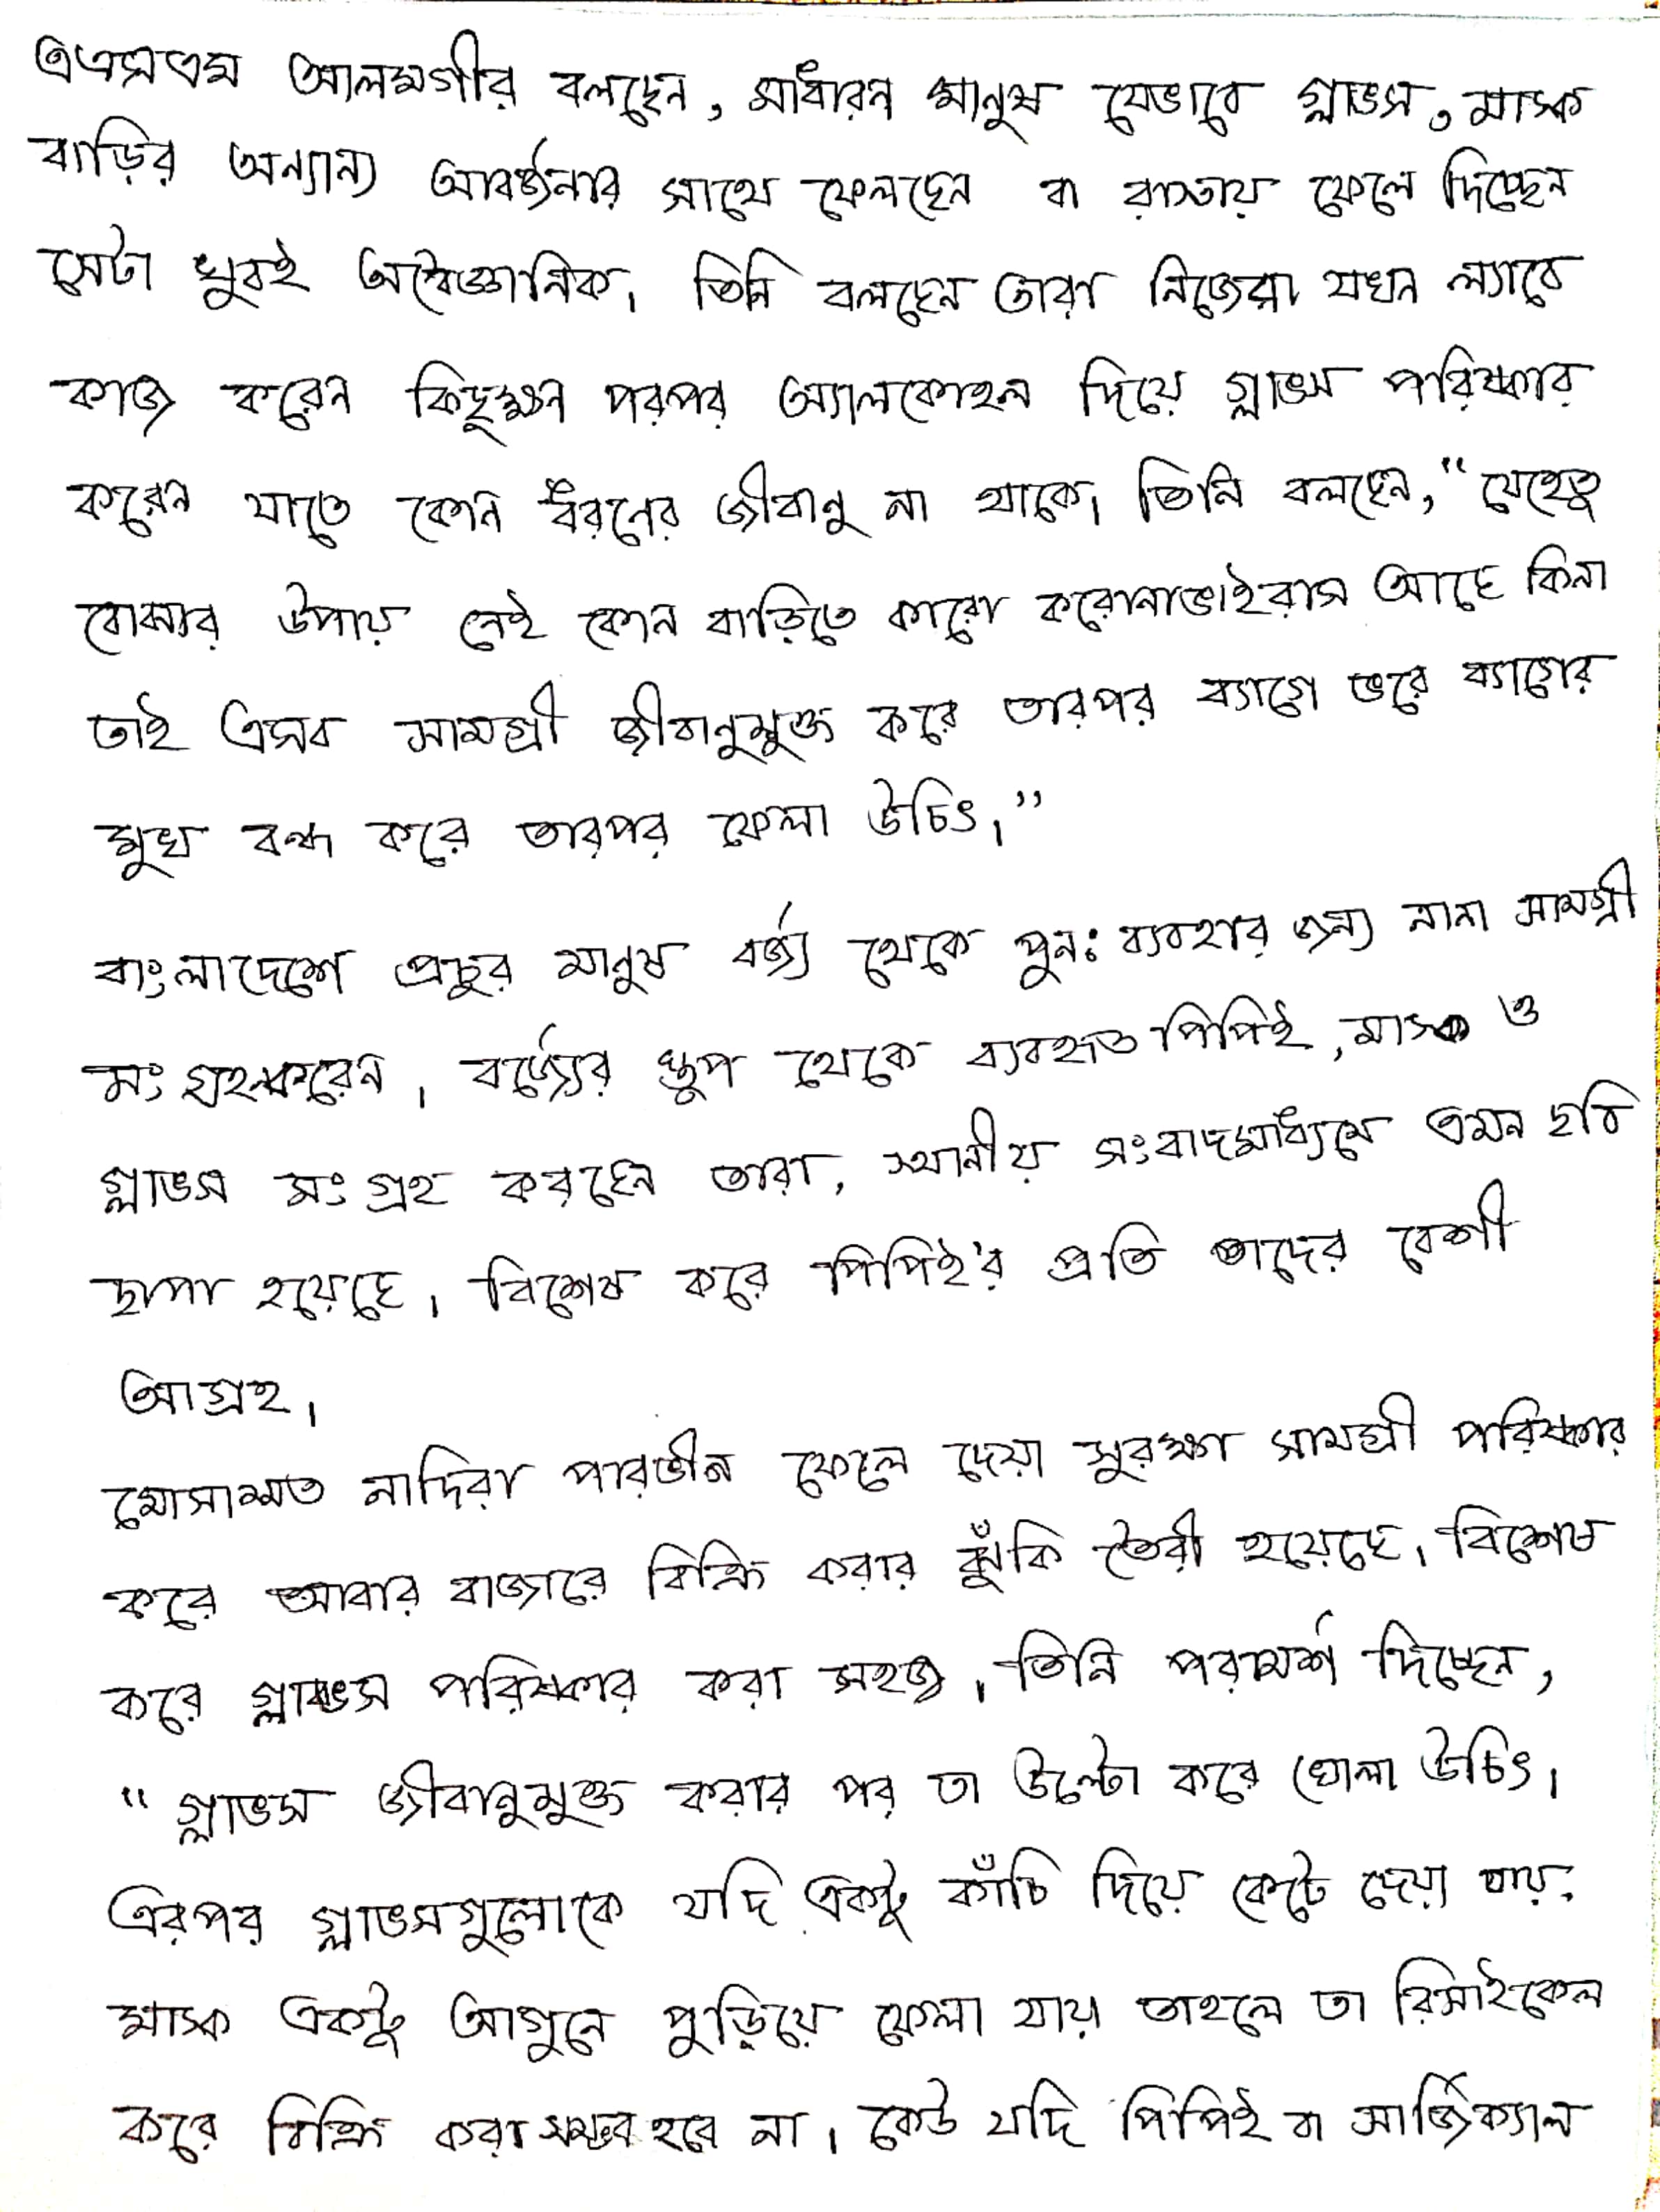 এএসএম আলমগীর বলছেন, সাধারন মানুষ যেভাবে গ্লাভস, মাস্ক
বাড়ির অন্যান্য আবর্জনার সাথে ফেলছেন বা রাস্তায় ফেলে দিচ্ছেন
সেটা খুবই অবৈজ্ঞানিক। তিনি বলছেন তারা নিজেরা যখন ল্যাবে
কাজ করেন কিছুক্ষন পরপর অ্যালকোহল দিয়ে গ্লাভস পরিষ্কার
করেন যাতে কোন ধরনের জীবানু না থাকে। তিনি বলছেন, "যেহেতু
বোঝার উপায় নেই কোন বাড়িতে কারো করোনাভাইরাস আছে কিনা
তাই এসব সামগ্রী জীবানুমুক্ত করে তারপর ব্যাগে ভরে ব্যাগের
মুখ বন্ধ করে তারপর ফেলা উচিৎ।"
বাংলাদেশে প্রচুর মানুষ বর্জ্য থেকে পুনঃব্যবহার জন্য নানা সামগ্রী
সংগ্রহ করেন। বর্জ্যের স্তুপ থেকে ব্যবহৃত পিপিই, মাস্ক ও
গ্লাভস সংগ্রহ করছেন তারা, স্থানীয় সংবাদমাধ্যমে এমন ছবি
ছাপা হয়েছে। বিশেষ করে পিপিই'র প্রতি তাদের বেশী
আগ্রহ।
মোসাম্মত নাদিরা পারভীন ফেলে দেয়া সুরক্ষা সামগ্রী পরিষ্কার
করে আবার বাজারে বিক্রি করার ঝুঁকি তৈরী হয়েছে। বিশেষ
করে গ্লাভস পরিষ্কার করা সহজ। তিনি পরামর্শ দিচ্ছেন,
"গ্লাভস জীবানুমুক্ত করার পর তা উল্টো করে খোলা উচিৎ।
এরপর গ্লাভসগুলোকে যদি একটু কাঁচি দিয়ে কেটে দেয়া যায়.
মাস্ক একটু আগুনে পুড়িয়ে ফেলা যায় তাহলে তা রিসাইকেল
করে বিক্রি করা সম্ভব হবে না। কেউ যদি পিপিই বা সার্জিক্যাল